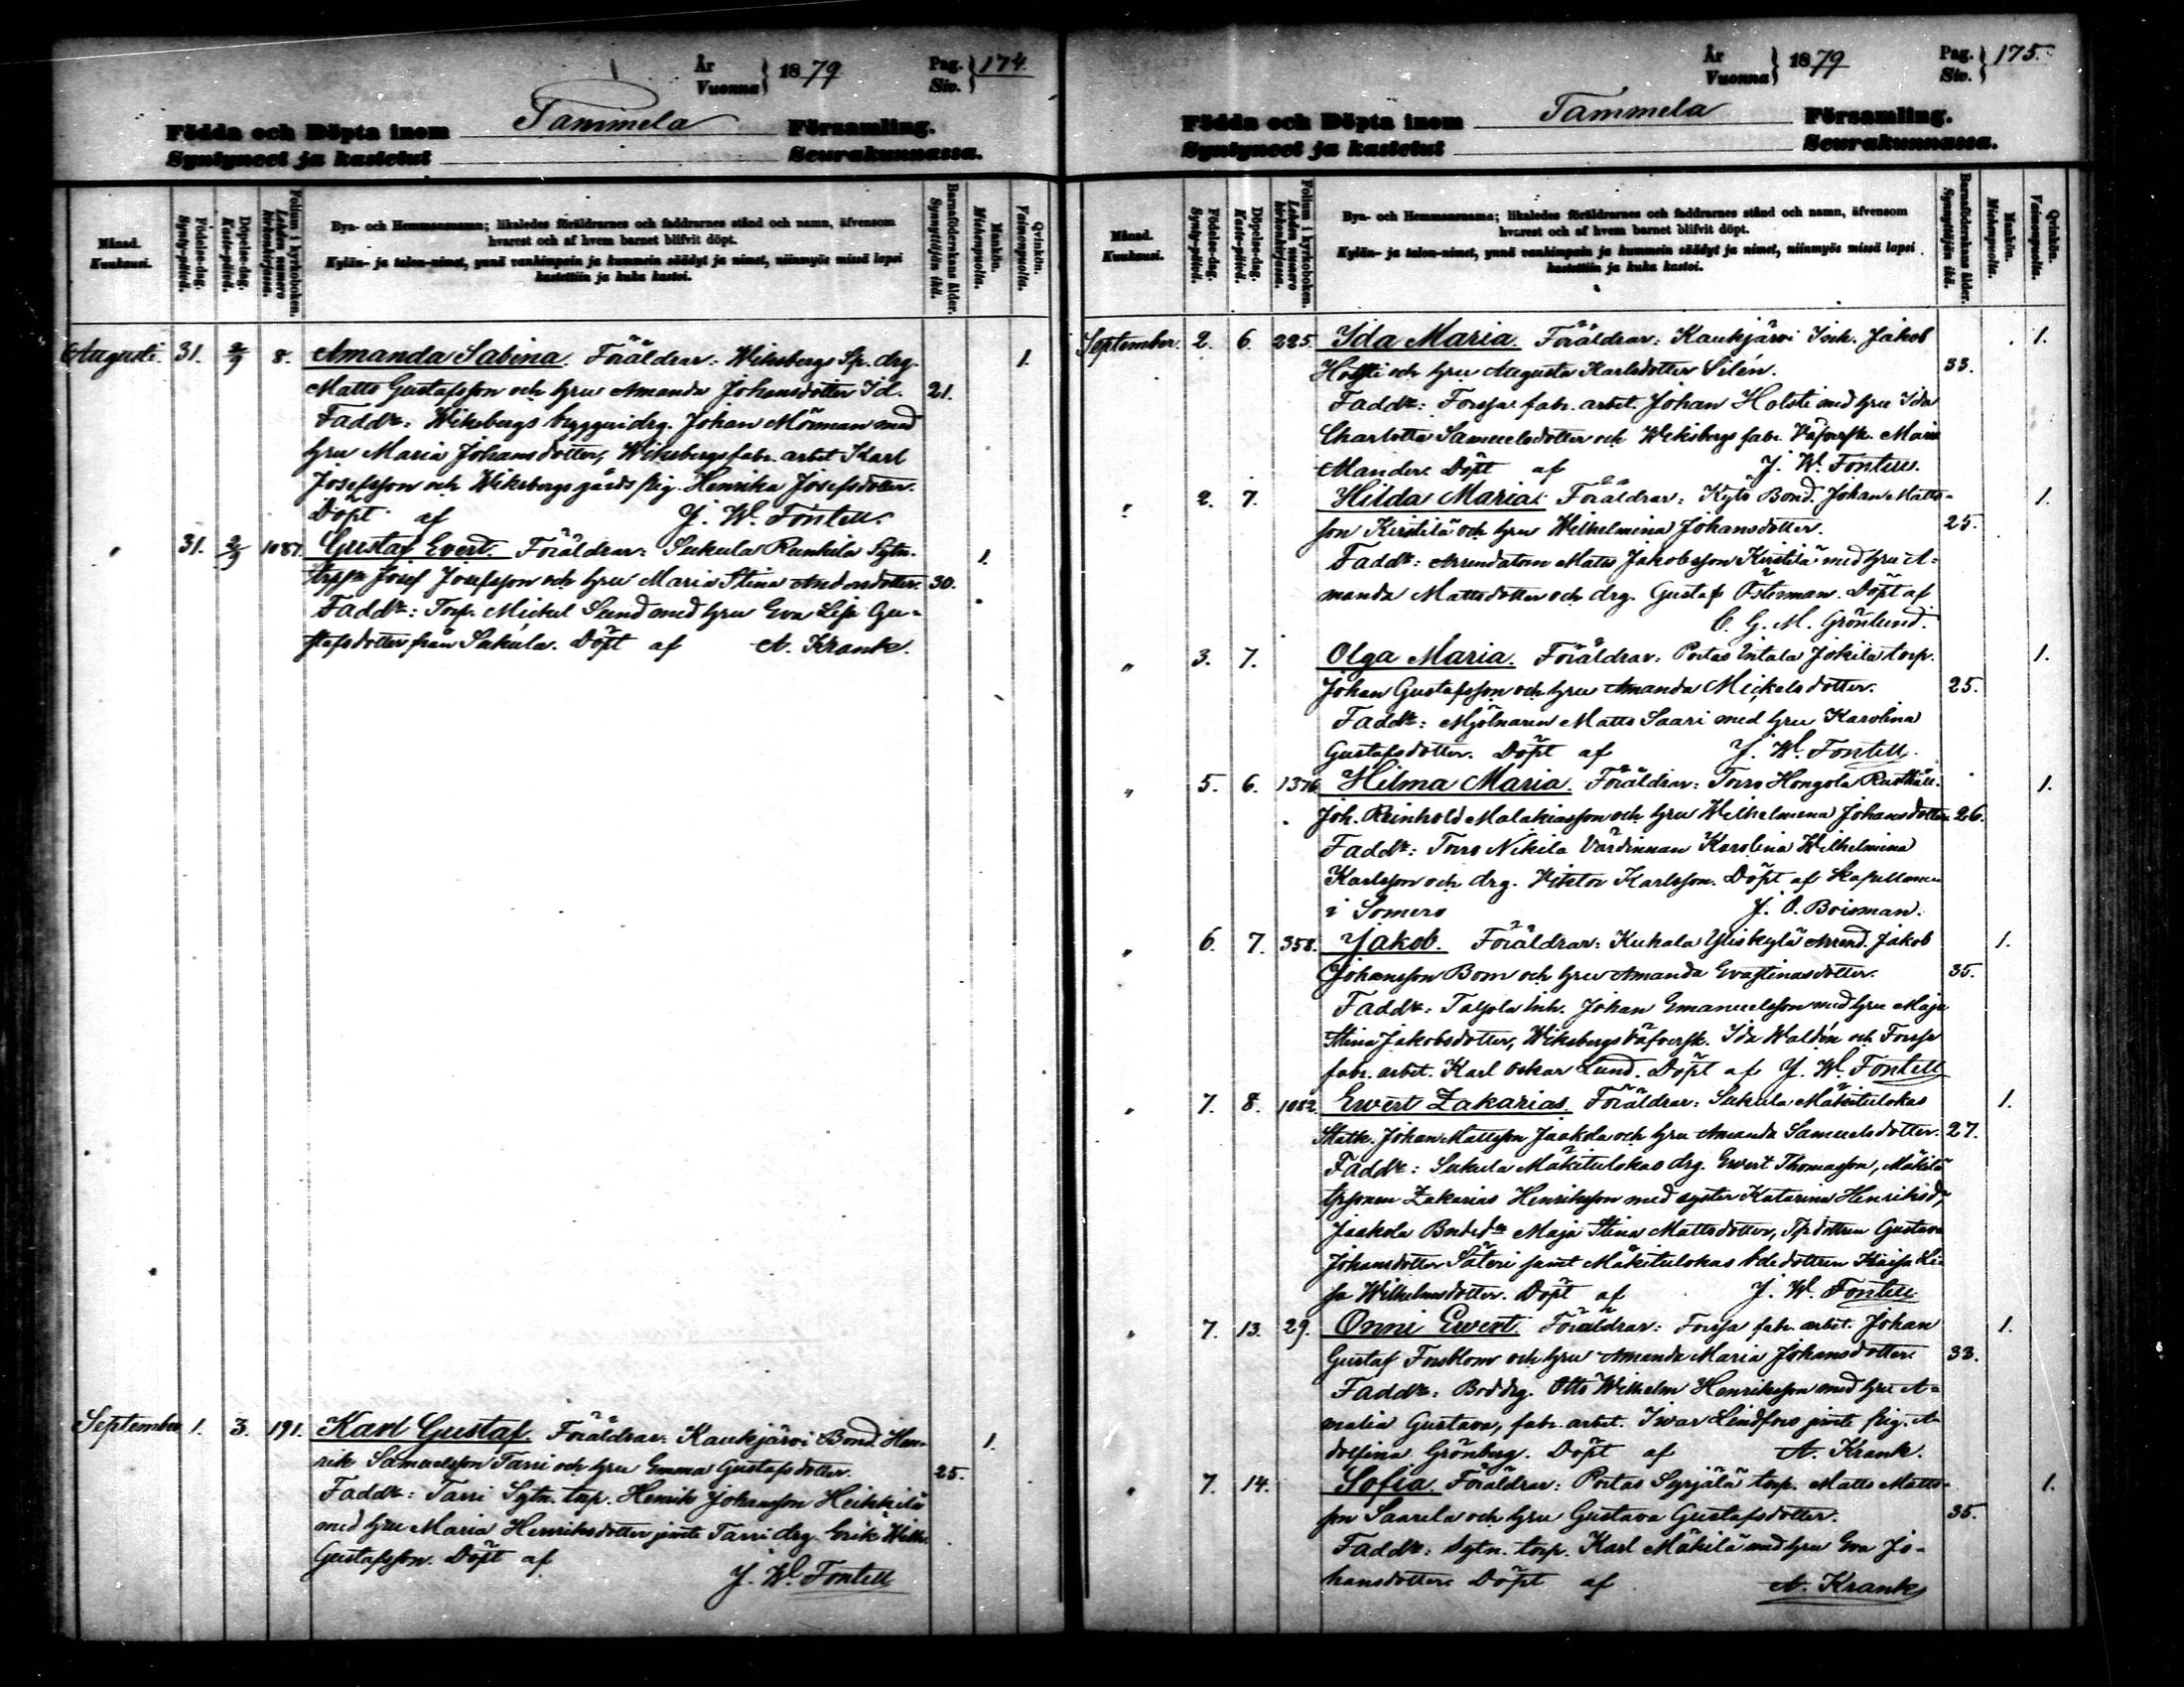 År
Vuonna } 1879
Pag.
Siv. } 174.
Födda och Döpta inom Tammela Församling.
Syntyneet ja kastetut Seurakunnassa.
Månad.
Kuukausi.
Födelse-dag.
Synty-päivä.
Döpelse-dag.
Kaste-päivä.
Folium i kyrkoboken.
Lehden numero kirkonkirjassa.
Bya- och Hemmansnamn; likaledes föräldrarnes och faddrarnes stånd och namn, äfvensom
hvarest och af hvem barnet blifvit döpt.
Kylän- ja talon-nimet, ynnä vanhimpain ja kummein säädyt ja nimet, niinmyös missä lapsi
kastettiin ja kuka kastoi.
Barnaföderskans ålder.
Synnyttäjän ikä.
Mankön.
Miehenpuolia.
Qvinkön.
Vaimonpuolia.
Augusti. 31. 2/9 8. Amanda Sabina. Föräldrar: Wiksbergs Sp. drg. 1.
Matts Gustafsson och hru Amanda Johansdotter Id. 21.
Faddr: Wiksbergs byggnidrg. Johan Mörman med
hru Maria Johansdotter, Wiksbergs fabr. arbet Karl
Josefsson och Wiksbergs gårds pig. Henrika Josefsdotter.
Döpt af J. W. Fontell.
" 31. 2/9 1087. Gustaf Evert. Föräldrar: Sukula Runkila Sytn. 1.
Josef Josefsson och hru Maria Stina Andersdotter. 30.
Faddr: Torp. Mickel Sund med hru Eva Lisa Gu-
stafsdotter från Sukula. Döpt af A. Krank.
September 1. 3. 191. Karl Gustaf. Föräldrar: Kaukjärvi Bond. Hen- 1.
rik Samuelsson Tarri och hru Emma Gustafsdotter. 25.
Faddr: Tarri Sytn. torp. Henrik Johansson Heikkilä
med hru Maria Henriksdotter jemte Tarri drg. Erik Wilh.
Gustafsson. Döpt af
J. W. Fontell
År
Vuonna } 1879
Pag.
Siv. } 175.
Födda och Döpta inom Tammela Församling.
Syntyneet ja kastetut Seurakunnassa.
Månad.
Kuukausi.
Födelse-dag.
Synty-päivä.
Döpelse-dag.
Kaste-päivä.
Folium i kyrkoboken.
Lehden numero kirkonkirjassa.
Bya- och Hemmansnamn; likaledes föräldrarnes och faddrarnes stånd och namn, äfvensom
hvarest och af hvem barnet blifvit döpt.
Kylän- ja talon-nimet, ynnä vanhimpain ja kummein säädyt ja nimet, niinmyös missä lapsi
kastettiin ja kuka kastoi.
Barnaföderskans ålder.
Synnyttäjän ikä.
Mankön.
Miehenpuolia.
Qvinkön.
Vaimonpuolia.
September. 2. 6. 225. Ida Maria. Föräldrar: Kaukjärvi Jakob 1.
och hru Augusta Karlsdotter Silén. 33.
Faddr: Forssa fabr. arbet. Johan Holsti med hru Ida
Charlotta Samuelsdotter och Wiksbergs fabr. Väfversk. Maria
Mander. Döpt af J. W. Fontell.
" 2. 7. Hilda Maria. Föräldrar: Kytö Bond. Johan Matts- 1.
son Kirstilä och hru Wilhelmina Johansdotter. 25.
Faddr: Arrendatorn Matts Jakobsson Kirstilä med hru A-
manda Mattsdotter och drg. Gustaf Österman. Döpt af
C. G. M. Grönlund.
" 3. 7. Olga Maria. Föräldrar: Portas Intala Jokila torp. 1.
Johan Gustafsson och hru Amanda Mickelsdotter. 25.
Faddr: Mjölnaren Matts Saari med hru Karolina
Gustafsdotter. Döpt af J. W. Fontell.
" 5. 6. 1376 Hilma Maria. Föräldrar: Torro Hongola Rusthåll. 1.
Joh. Reinhold Malakiasson och hru Wilhelmina Johansdotter 26.
Faddr: Torro Nikila Värdinnan Karolina Wilhelmina
Karlsson och drg. Viktor Karlsson. Döpt af Kapellanen
i Somero J. O. Boisman.
" 6. 7. 358. Jakob. Föräldrar: Kuhala Yliskylä Arrend. Jakob 1.
Johansson Bom och hru Amanda Evastinasdotter. 35.
Faddr: Talsola Inh. Johan Emanuelsson med hru Maja
Stina Jakobsdotter, Wiksbergs Väfversk. Ida Waldén och Forssa
fabr. arbet. Karl Oskar Lund. Döpt af J. W. Fontell
" 7. 8. 1082. Ewert Zakarias. Föräldrar: Sukula Mäkitulokas 1.
Statk. Johan Mattsson Jaakola och hru Amanda Samuelsdotter. 27.
Faddr: Sukula Mäkitulokas drg. Ewert Thomasson, Mäkilä
Zakarias Henriksson med syster Katarina Henriksdr,
Jaakola Maja Stina Mattsdotter, Gustava
Johansdotter Säteri samt Mäkitulokas Kaisa Li-
sa Wilhelmsdotter. Döpt af J. W. Fontell
" 7. 13. 29. Onni Ewert. Föräldrar: Forssa fabr. arbet. Johan 1.
Gustaf Forsblom och hru Amanda Maria Johansdotter. 33.
Faddr: Boddrg. Otto Wilhelm Henriksson med hru A-
malia Gustava, fabr. arbet. Iwar Lindfors jemte pig. A-
dolfina Grönberg. Döpt af A. Krank.
" 7. 14. Sofia. Föräldrar: Portas Syrjälä torp. Matts Matts- 1.
son Saarela och hru Gustava Gustafsdotter. 35.
Faddr: Sytn. torp. Karl Mäkilä med hru Eva Jo-
hansdotter. Döpt af A. Krank